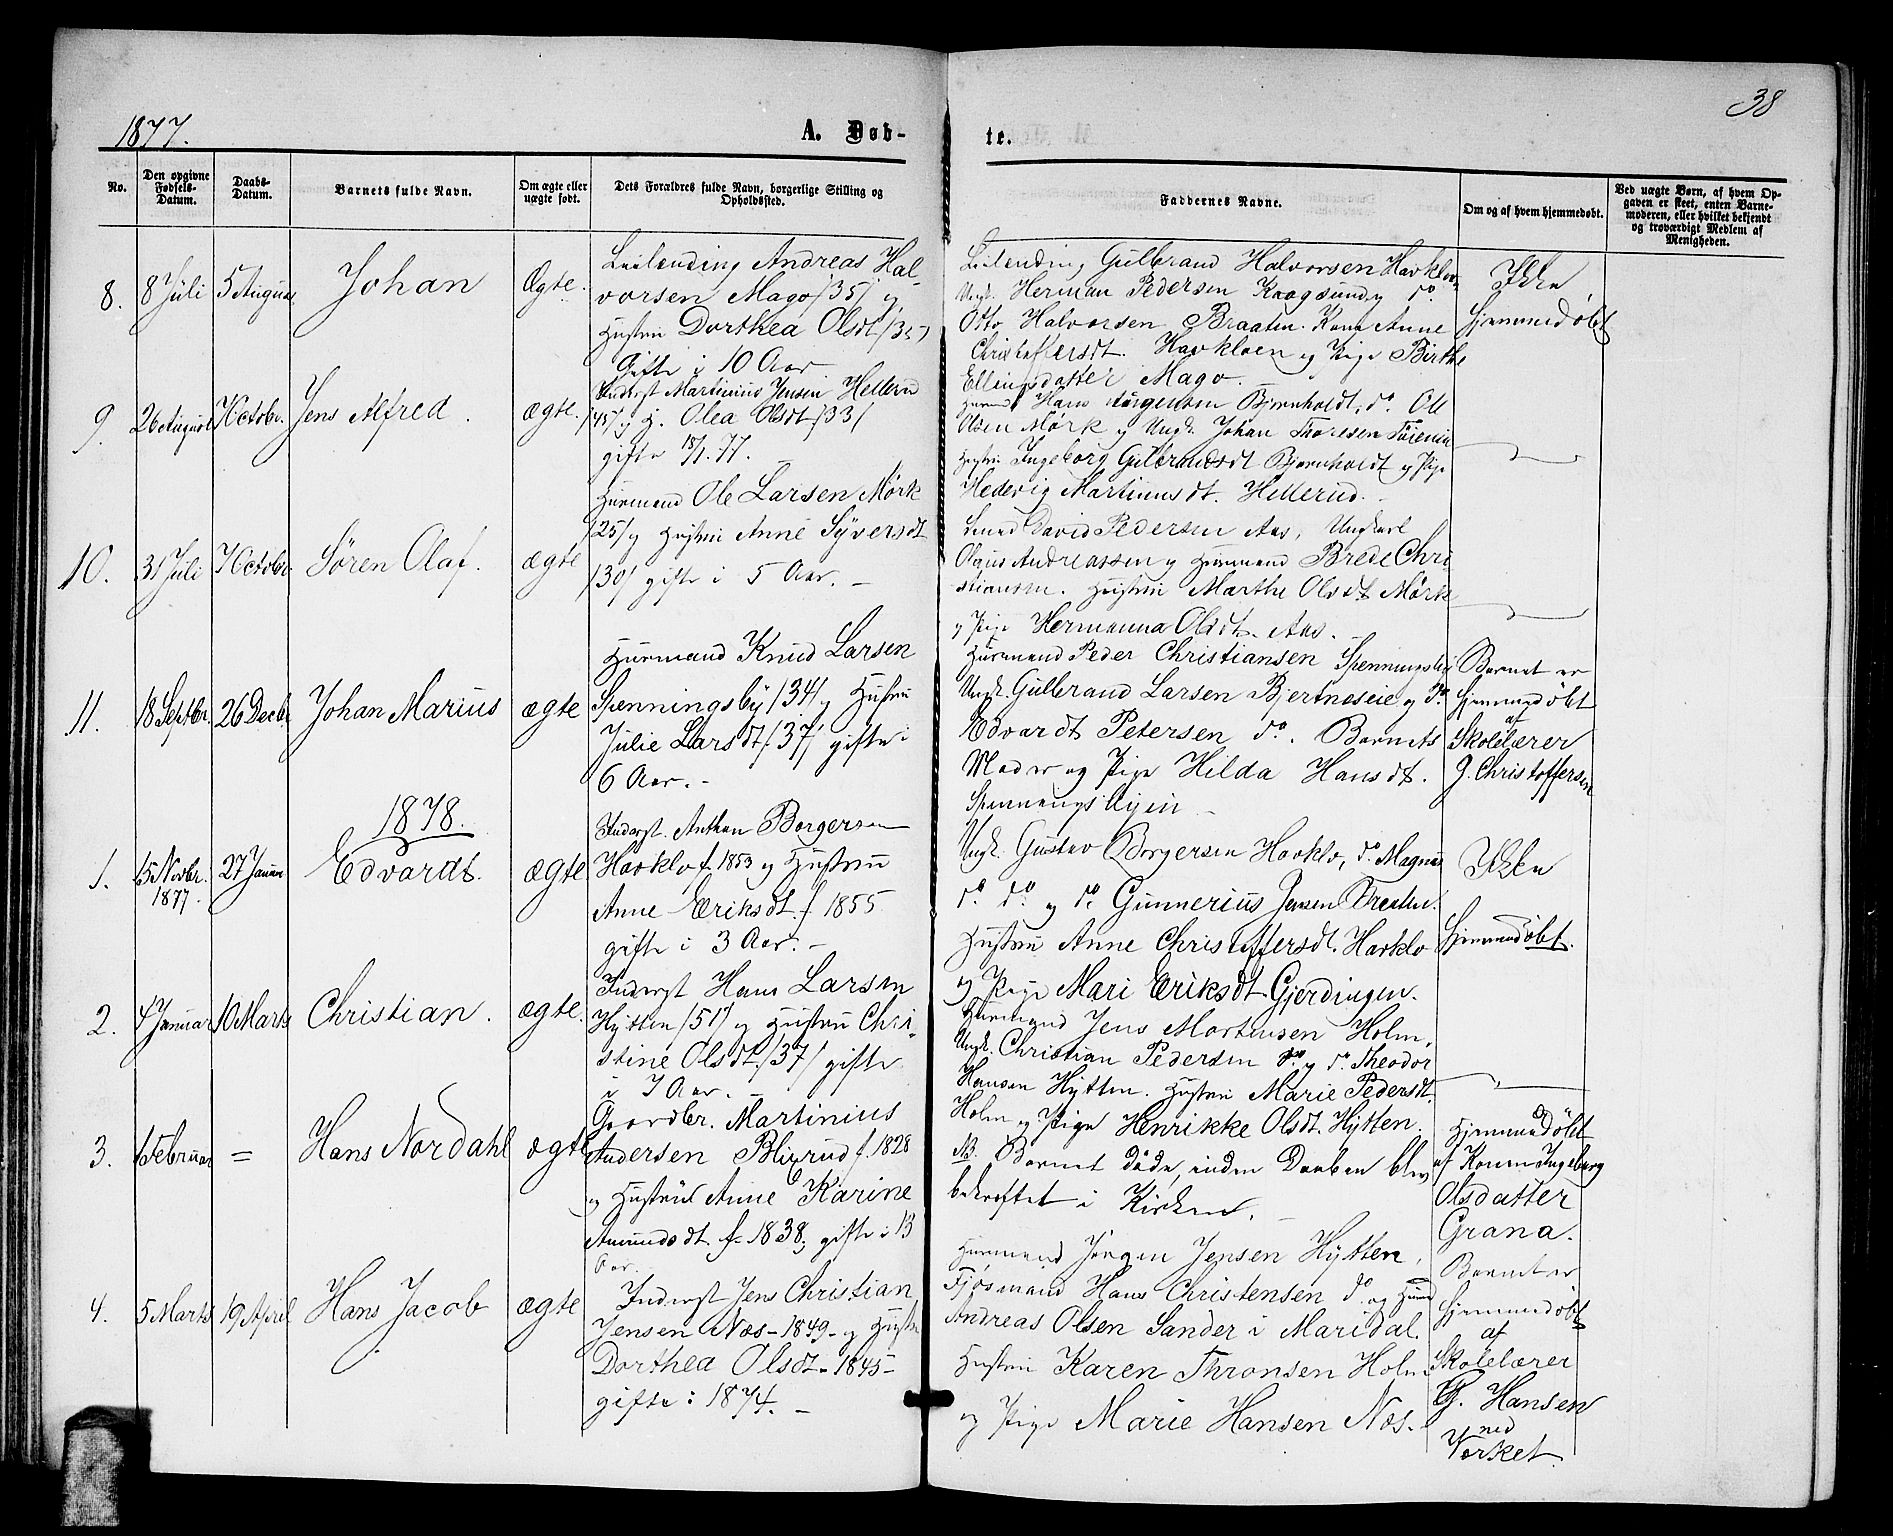 38
1877.
A. Døb-
te.
No.
Den opgivne
Fødsels-
Datum.
Daabs-
Datum.
Barnets fulde Navn.
Om ægte eller
uægte født.
Dets Forældres fulde Navn, borgerlige Stilling og
Opholdssted.
Faddernes Navne.
Om og af hvem hjemmedøbt.
Ved uægte Børn, af hvem Op-
gaven er skeet, enten Barne-
moderen, eller hvilket bekjendt
og troværdigt Medlem af
Menigheden.
8.
8 Juli
5 August
Johan
Ægte.
Leilending Andreas Hal-
vorsen Mago /35/ og
Hustru Dorthea Olsdt /35/
Gifte i 10 Aar
Leilending Gulbrand Halvorsen Harklo
Ungk. Herman Pedersen do.
Otto Halvorsen Braaten. Kone Anne
Christoffersdt. Harkloen og Pige Birthe
Ellingsdatter Mago.
Ikke
hjemmedøbt
9.
26 August
7 Octobr.
Jens Alfred.
ægte.
Inderst Martinius Jensen Hellerud
/45/ og H. Olea Olsdt /33/
gifte 18/1. 77.
Hurmd Hans Jørgensen Bjørnholdt, do. Ole
Olsen Mørk og Ungk. Johan Thoresen
Hustru Ingeborg Gulbrandsdt Bjørnholdt og Pige
Hedevig Martinusdt. Hellerud.
10.
31 Juli
7 Octobr
Søren Olaf.
ægte
Hurmand Ole Larsen Mørk
/25/ og Hustru Anne Syversdt
/30/ gifte i 5 Aar. -
Smed David Pedersen Aas, Ungkarl
Olaus Andreassen og Hurmand Brede Chri-
stiansen. Hustru Marthe Olsdt Mørk
og Pige Hermanna Olsdt. Aas.
11.
18 Septbr.
26 Decbr
Johan Marius
ægte
Hurmand Knud Larsen
Spenningsby /34/ og Hustru
Julie Larsdt /37/ gifte i
6 Aar. -
Hurmand Peder Christiansen Spenningsby
Ungk. Gulbrand Larsen Bjertneseie og do.
Edvardt Petersen do. Barnets
Moder og Pige Hilda Hansdt.
Spenningsbyen -
Barnet er
hjemmedøbt
af
Skolelærer
J. Christoffersen
1878.
1.
15 Novbr.
1877.
27 Januar
Edvardt.
ægte
Inderst. Anthon Borgersen
Harklo f. 1853 og Hustru
Anne Eriksdt. f. 1855
gifte i 3 Aar. -
Ungk. Gustav Borgersen Harklo, do. Magnus
do. do. og do. Gunnerius Jensen Braaten.
Hustru Anne Christoffersdt. Harklo
og Pige Mari Eriksdt Gjerdingen.
Ikke
hjemmedøbt.
2.
4 Januar
10 Marts
Christian.
ægte.
Inderst Hans Larsen
Hytten /51/ og Hustru Chri-
stine Olsdt /37/ gifte
i 7 Aar. -
Hurmand Jens Mortensen Holm,
Ungk. Christian Pedersen do. og do. Theodor
Hansen Hytten. Hustru Marie Pedersdt.
Holm og Pige Henrikke Olsdt. Hytten.
3.
1 Februar
=
Hans Nordahl
ægte
Gaardbr. Martinius
Andersen Blixrud f. 1828
og Hustru Anne Karine
Amundsdt. f. 1838, gifte i 13
Aar.
NB. Barnet døde, inden Daaben blev
bekræftet i Kirken. -
Hjemmedøbt
af Konen Ingeborg
Olsdatter
Grana.
4.
5 Marts
19 April
Hans Jacob
ægte
Inderst Jens Christian
Jensen Næs - 1849 - og Hustru
Dorthea Olsdt - 1845 -
gifte i 1874. -
Hurmand Jørgen Jensen Hytten,
Fjøsmand Hans Christensen do. og Hurmd
Andreas Olsen Sander i Maridal.
Hustru Karen Thronsen Holm
og Pige Marie Hansen Næs.
Barnet er
hjemmedøbt
af
Skolelærer
G. Hansen
ved
Værket.